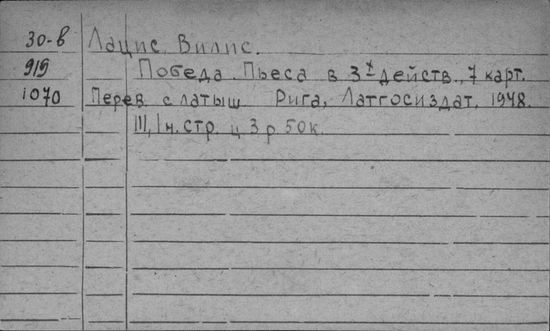 30-в Лацис, Вилис.
919 Победа. Пьеса в 3х действ., 7 карт.
1070 Перев. с латыш Рига, Латгосиздат, 1948.
111, 1 н. стр. ц 3 р 50 к.